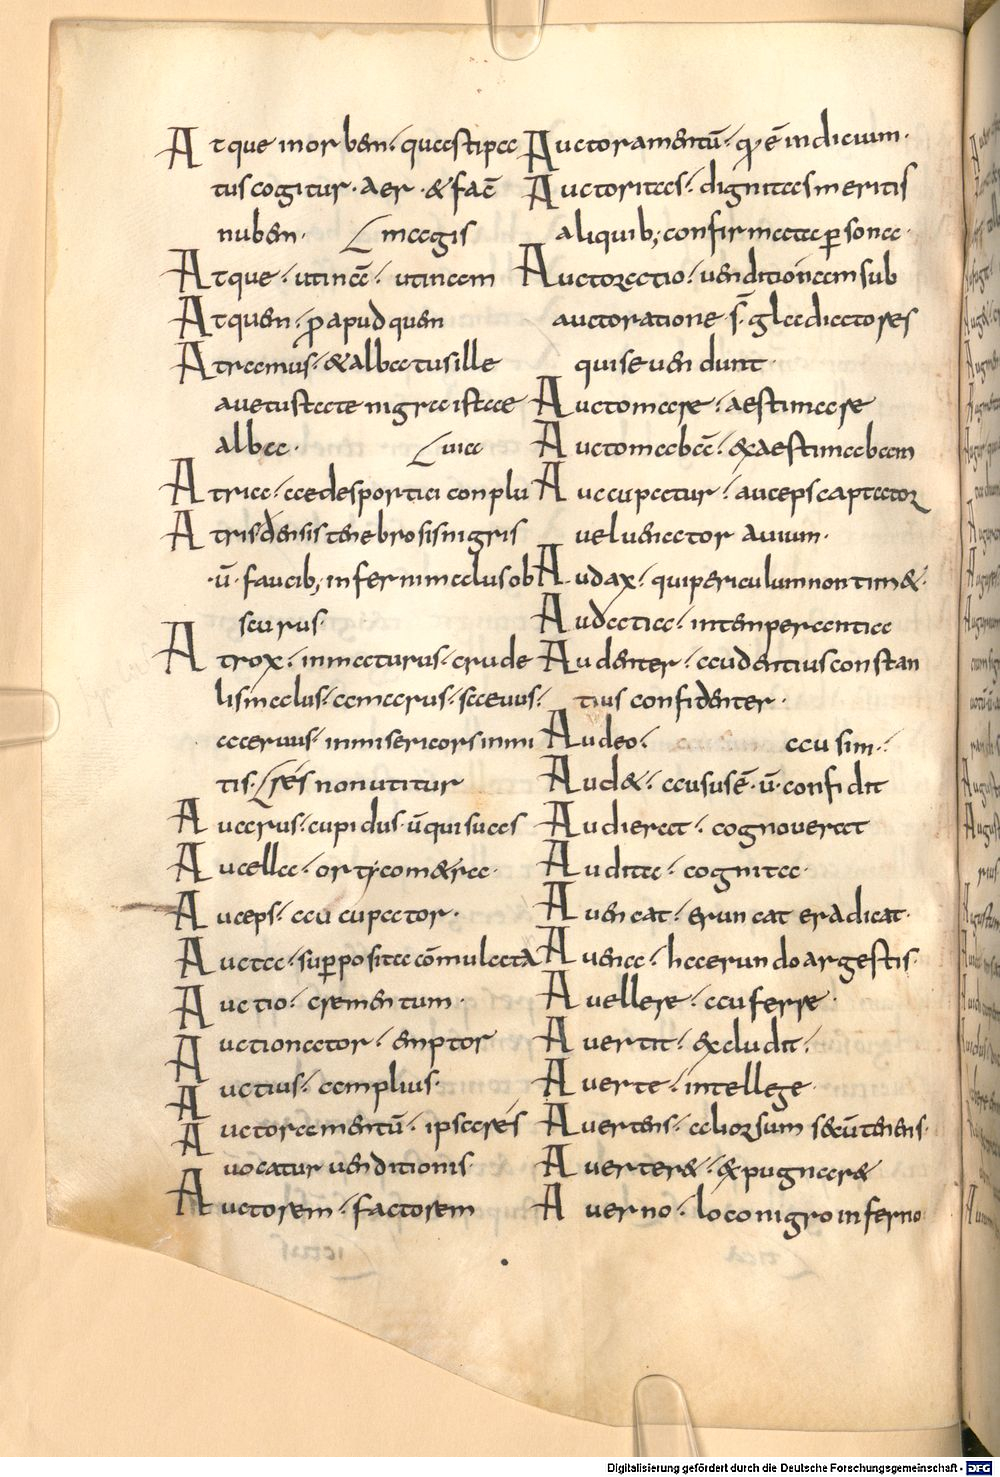 Atque in orbem· quasi stipa
tus cogitur· aer· & facē
nubem· magis
Atque· utinā· utinam
Atquen· p̄ apud quen
Atramus· & albatus ille
a uetustate nigra istae
alba· uia
Atria· aedes portici conplu
Atris densis tenebrosis nigris
·ū· faucib; inferni malus ob
scurus·
Atrox· inmaturus· crude
lis malus· amarus· saeuus·
aceruus· inmisericors inmi
tis· res non utitur
Auarus· cupidus· ū qui suas
Aucella· ortycometra·
Auceps· aucupator·
Aucta· supposita cōmulcata
Auctio· crementum·
Auctionator· emptor
Auctius· amplius·
Auctoramentū· ipsa res
uocatur uenditionis·
Auctorem· factorem
Auctoramentū· q̄ ē indicium·
Auctoritas· dignitas meritis
aliquib; confirmata persona·
Auctoratio· uenditionam sub
auctoratione s̄· gladiatores
qui se uendunt·
Automare· aestimare
Automabā· exaestimabam
Aucupatur· auceps captator
uel uenator auium·
Audax· qui periculum non tim&·
Audatia· intemperantia
Audenter· audentius constan
tius confidenter·
Audeo· ausim·
Aud&· ausus ē· ū· confidit
Audierat· cognouerat
Audita· cognita·
Aueneat· eruncat eradicat·
Auena· harundo argestis·
Auellere· auferre·
Auertit· excludit·
Auerte· intellege·
Auertens· aliorsum secū tenens·
Auerter&· expugnar&
Auerno· loco nigro inferno
Digitalisierung gefördert durch die Deutsche Forschungsgemeinschaft - DFG